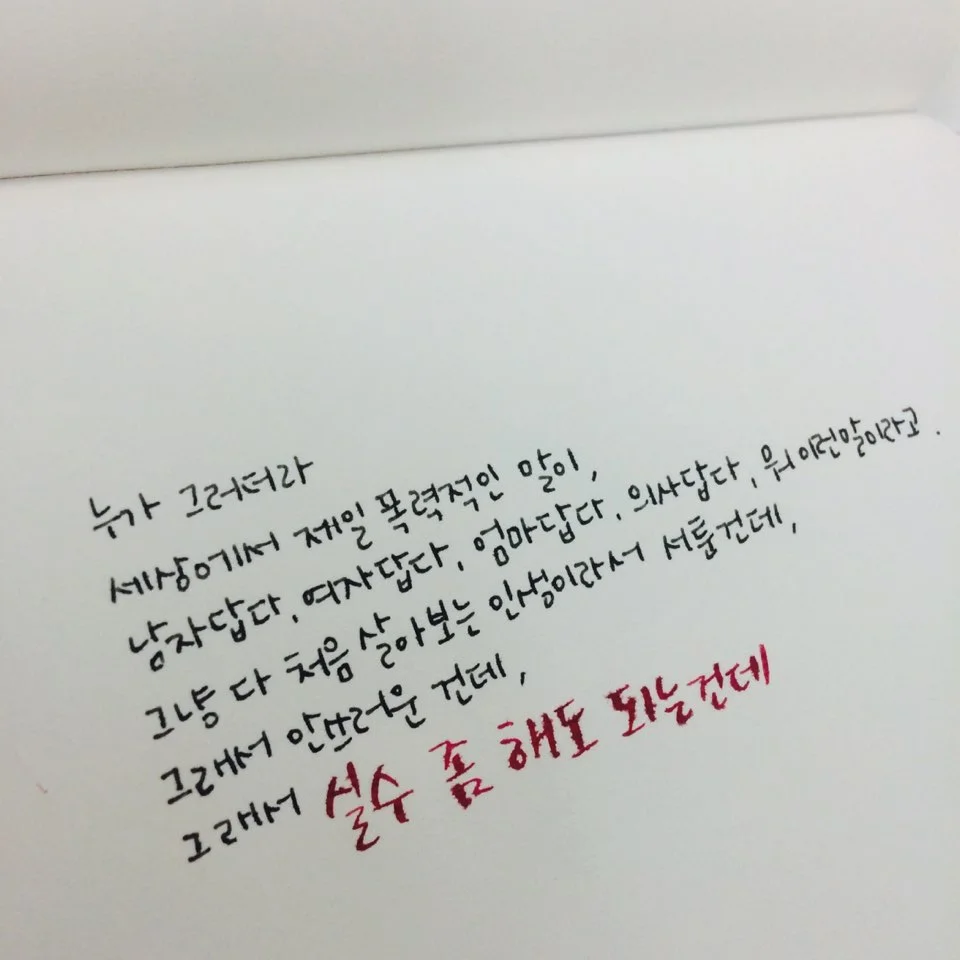 누가 그러더라
세상에서 제일 폭력적인 말이,
남자답다, 여자답다, 엄마답다, 의사답다, 뭐 이런말이라고.
그냥 다 처음 살아보는 인생이라서 서툰건데,
그래서 안쓰러운 건데,
그래서 실수 좀 해도 되는건데